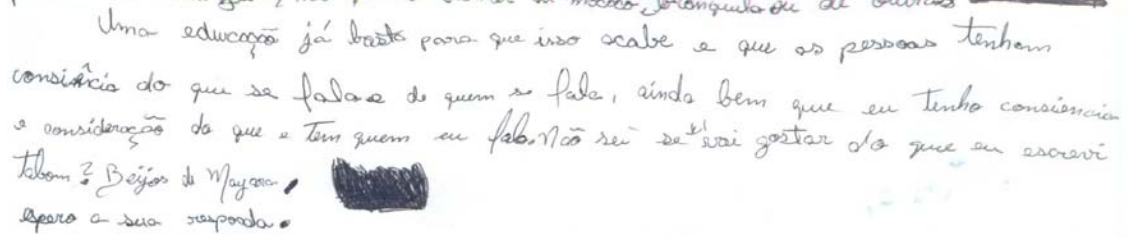 macaco, branquela ou de outras
Uma educação já basta para que isso acabe e que as pessoas tenham
consiência do que se fala e de quem se fala, ainda bem que eu tenho consciencia
e consideração do que e tem quem eu falo. Não sei se vai gostar do que eu escrevi
tabom? Beijos de Mayara.
espero a sua responda.